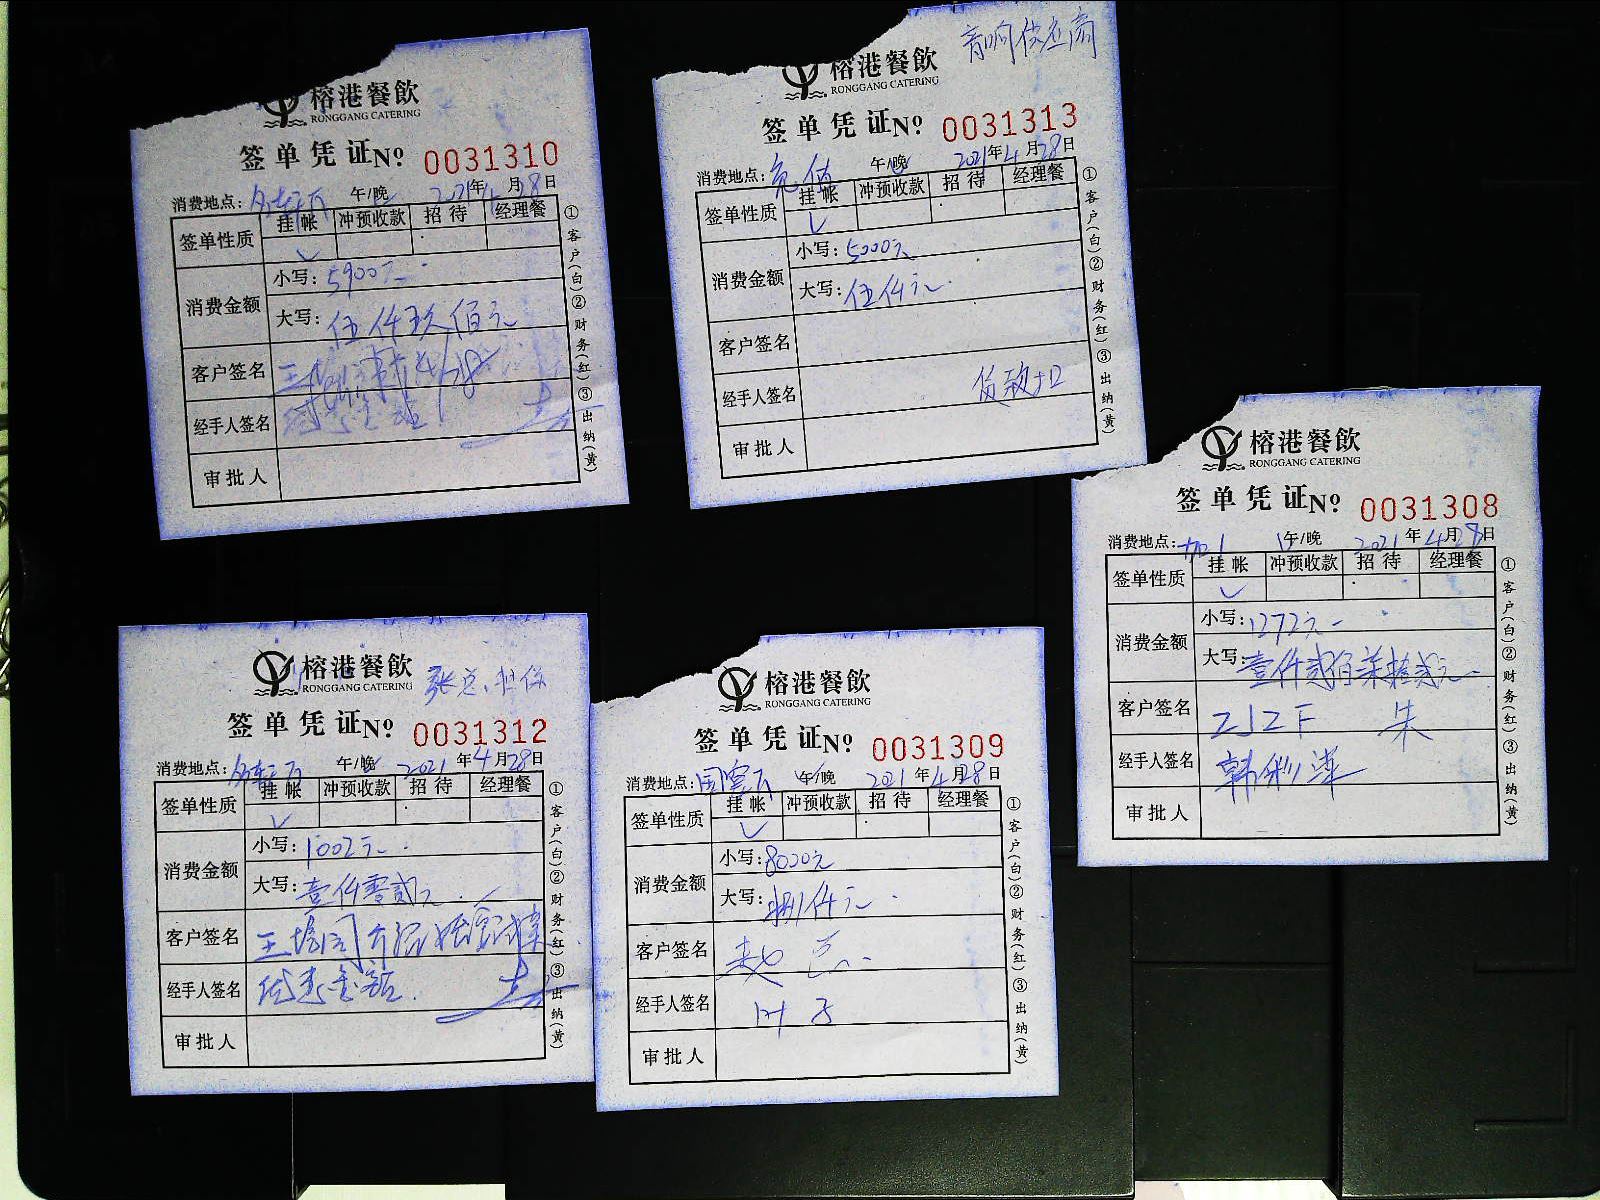 榕港餐飲
RONGGANG CATERING
签单凭证 Nº 0031310
消费地点: 午/晚 2021年4月28日
签单性质 挂帐 冲预收款 招待 经理餐
✓
消费金额 小写: 5900元
大写: 伍仟玖佰元
客户签名
经手人签名
审批人
①客户(白)②财务(红)③出纳(黄)
音响供应商
榕港餐飲
RONGGANG CATERING
签单凭证 Nº 0031313
消费地点: 午/晚 2021年4月28日
签单性质 挂帐 冲预收款 招待 经理餐
✓
消费金额 小写: 5000元
大写: 伍仟元
客户签名
经手人签名 货款扣
审批人
①客户(白)②财务(红)③出纳(黄)
榕港餐飲
RONGGANG CATERING
签单凭证 Nº 0031308
消费地点: 午/晚 2021年4月28日
签单性质 挂帐 冲预收款 招待 经理餐
✓
消费金额 小写: 1272元
大写: 壹仟贰佰柒拾贰元
客户签名 朱
经手人签名 韩
审批人
①客户(白)②财务(红)③出纳(黄)
榕港餐飲
RONGGANG CATERING
张总
签单凭证 Nº 0031312
消费地点: 午/晚 2021年4月28日
签单性质 挂帐 冲预收款 招待 经理餐
✓
消费金额 小写: 1002元
大写: 壹仟零贰元
客户签名 王
经手人签名 优惠金额
审批人
①客户(白)②财务(红)③出纳(黄)
榕港餐飲
RONGGANG CATERING
签单凭证 Nº 0031309
消费地点: 午/晚 2021年4月28日
签单性质 挂帐 冲预收款 招待 经理餐
✓
消费金额 小写: 8000元
大写: 捌仟元
客户签名 赵总
经手人签名 叶子
审批人
①客户(白)②财务(红)③出纳(黄)